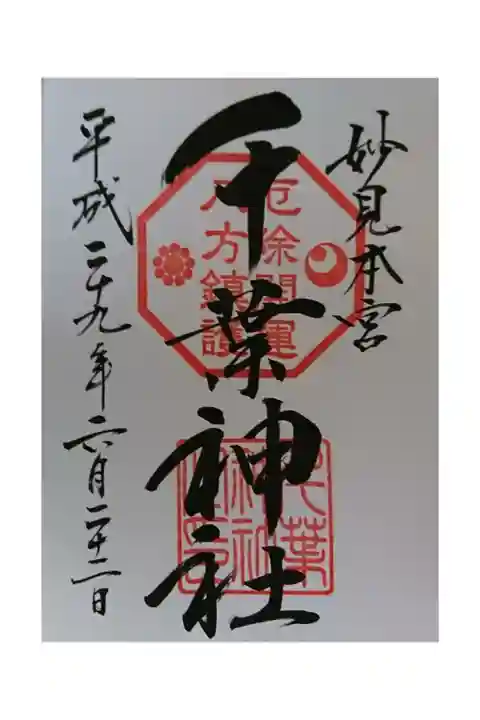 妙見本宮
千葉神社
平成二十九年六月二十二日
厄除開運
八方鎮護